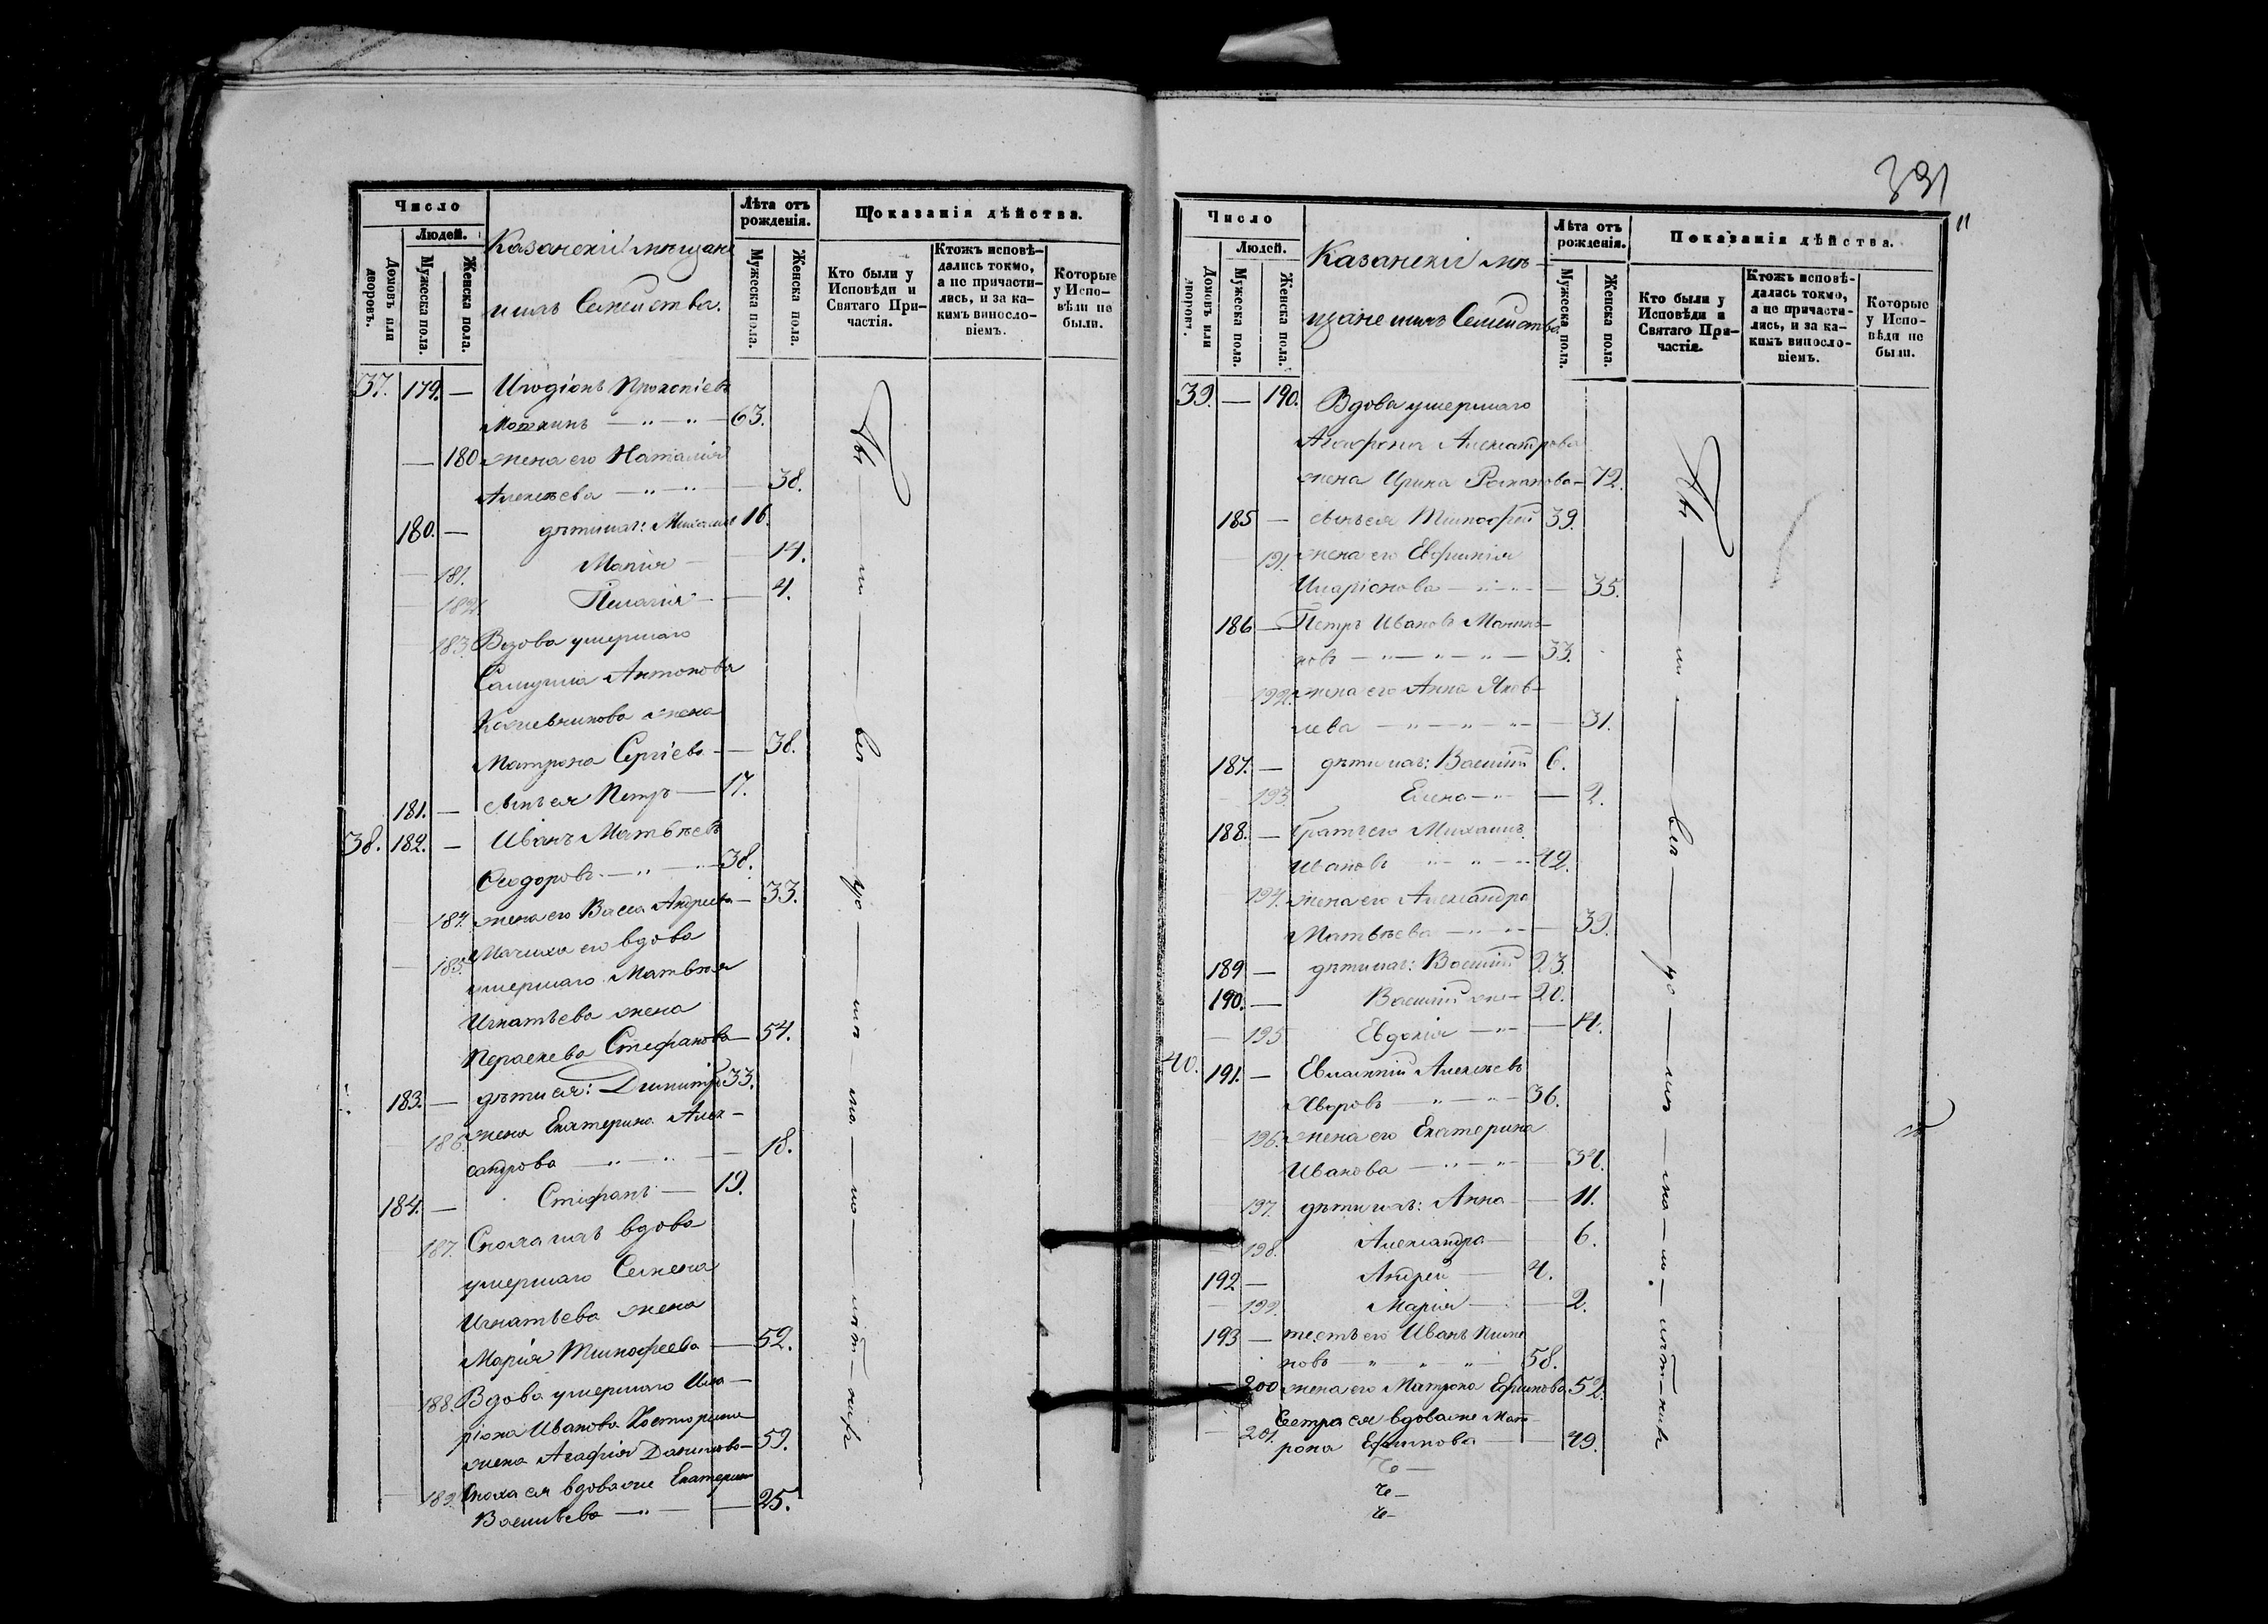 Число
Людей.
Домовъ или дворовъ.
Мужеска пола.
Женска пола.
Казанскіи мѣщане
и ихъ Семейства.
Лѣта отъ рожденія.
Мужеска пола.
Женска пола.
Показанія дѣйства.
Кто были у Исповѣди и Святаго Причастія.
Ктожъ исповѣдались токмо, а не причастились, и за какимъ винословіемъ.
Которые у Исповѣди не были.
37. 179. — Иродіонъ Прокопіевъ
63.
— 180 жена его Наталія
Алексѣева — „ — „ — 38.
180. — дѣти ихъ: Михаилъ 16.
— 181. Марія — 14.
— 182. Пелагія — 4.
183. Вдова умершаго
Самуила Антонова
Кожевникова жена
Матрона Сергіева — 38.
181. — сынъ ея Петръ — 17.
38. 182. — Иванъ Матвѣевъ
Ѳеодоровъ — „ — „ — 38.
— 184. жена его Васса Андреева — 33.
— 185. Мачиха его вдова
умершаго Матвѣя
Игнатьева жена
Параскева Стефанова — 54.
183. — дѣти ея: Димитрій 33.
— 186. жена Екатерина Алек-
сандрова — „ — „ — 18.
184. — Стефанъ — 19.
— 187. Сноха ихъ вдова
умершаго Семена
Игнатьева жена
Марія Тимофеева — 52.
— 188. Вдова умершаго Ила-
ріона Иванова
жена Агафія Данилова — 59.
— 189. Сноха ея вдова же Екатерина
Васильева — „ — 25.
Всѣ
ис
по
вѣ
331
11
Число
Людей.
Домовъ или дворовъ.
Мужеска пола.
Женска пола.
Казанскіи мѣ-
щане и ихъ Семейства
Лѣта отъ рожденія.
Мужеска пола.
Женска пола.
Показанія дѣйства.
Кто были у Исповѣди и Святаго Причастія.
Ктожъ исповѣдались токмо, а не причастились, и за какимъ винословіемъ.
Которые у Исповѣди не были.
39. — 190. Вдова умершаго
Агафона
жена Ирина Романова — 72.
185 — сынъ ея Тимофей 39.
— 191. жена его Евфимія
Иларіонова — „ — „ — 35.
186 — Петръ Ивановъ
новъ — „ — „ — „ — 33.
— 192. жена его Анна Яков-
лева — „ — „ — „ — 31.
187. — дѣти ихъ: Василій 6.
— 193. Елена — „ — 2.
188. — братъ его Михаилъ
Ивановъ — „ — „ — „ 42.
— 194. жена его Александра
Матвѣева — „ — „ — 39.
189 — дѣти ихъ: Василій 23.
190. — Василій же — 20.
— 195 Евдокія — „ — 14.
40. 191. — Евлампій Алексѣевъ
— „ — „ — 36.
— 196. жена его Екатерина
Иванова — „ — „ — 34.
— 197. дѣти ихъ: Анна — 11.
— 198. Александра — 6.
192 — Андрей — 4.
— 199. Марія — 2.
193 — тесть его Иванъ Пиме-
новъ — „ — „ — „ — 58.
— 200 жена его Матрона Ефимова 52.
— 201. Сестра ея вдова же Мат-
рона Ефимова — 49.